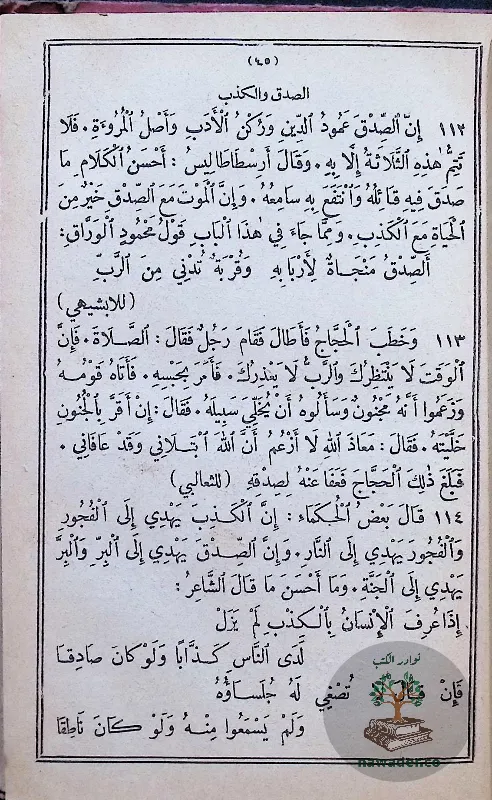 (٤٥)
الصدق والكذب
١١٢ إِنَّ الصِّدْقَ عَمُودُ الدِّينِ وَرُكْنُ الْأَدَبِ وَأَصْلُ الْمُرُوءَةِ. فَلَا
تَتِمُّ هٰذِهِ الثَّلَاثَةُ إِلَّا بِهِ. وَقَالَ أَرِسْطَاطَالِيسُ: أَحْسَنُ الْكَلَامِ مَا
صَدَقَ فِيهِ قَائِلُهُ وَانْتَفَعَ بِهِ سَامِعُهُ. وَإِنَّ الْمَوْتَ مَعَ الصِّدْقِ خَيْرٌ مِنَ
الْحَيَاةِ مَعَ الْكَذِبِ. وَمِمَّا جَاءَ فِي هٰذَا الْبَابِ قَوْلُ مَحْمُودٍ الْوَرَّاقِ:
أَلصِّدْقُ مَنْجَاةٌ لِأَرْبَابِهِ وَقُرْبَةٌ تُدْنِي مِنَ الرَّبِّ
(للابشيهي)
١١٣ وَخَطَبَ الْحَجَّاجُ فَأَطَالَ فَقَامَ رَجُلٌ فَقَالَ: الصَّلَاةَ. فَإِنَّ
الْوَقْتَ لَا يَنْتَظِرُكَ وَالرَّبُّ لَا يَعْذِرُكَ. فَأَمَرَ بِحَبْسِهِ. فَأَتَاهُ قَوْمُهُ
وَزَعَمُوا أَنَّهُ مَجْنُونٌ وَسَأَلُوهُ أَنْ يُخَلِّيَ سَبِيلَهُ. فَقَالَ: إِنْ أَقَرَّ بِالْجُنُونِ
خَلَّيْتُهُ. فَقَالَ: مَعَاذَ اللهِ لَا أَزْعُمُ أَنَّ اللهَ ابْتَلَانِي وَقَدْ عَافَانِي.
فَبَلَغَ ذٰلِكَ الْحَجَّاجَ فَعَفَا عَنْهُ لِصِدْقِهِ (للثعالبي)
١١٤ قَالَ بَعْضُ الْحُكَمَاءِ: إِنَّ الْكَذِبَ يَهْدِي إِلَى الْفُجُورِ
وَالْفُجُورَ يَهْدِي إِلَى النَّارِ. وَإِنَّ الصِّدْقَ يَهْدِي إِلَى الْبِرِّ وَالْبِرَّ
يَهْدِي إِلَى الْجَنَّةِ. وَمَا أَحْسَنَ مَا قَالَ الشَّاعِرُ:
إِذَا عُرِفَ الْإِنْسَانُ بِالْكِذْبِ لَمْ يَزَلْ
لَدَى النَّاسِ كَذَّابًا وَلَوْ كَانَ صَادِقَا
فَإِنْ قَالَ تُصْغِي لَهُ جُلَسَاؤُهُ
وَلَمْ يَسْمَعُوا مِنْهُ وَلَوْ كَانَ نَاطِقَا
نوادر الكتب
nawader.co